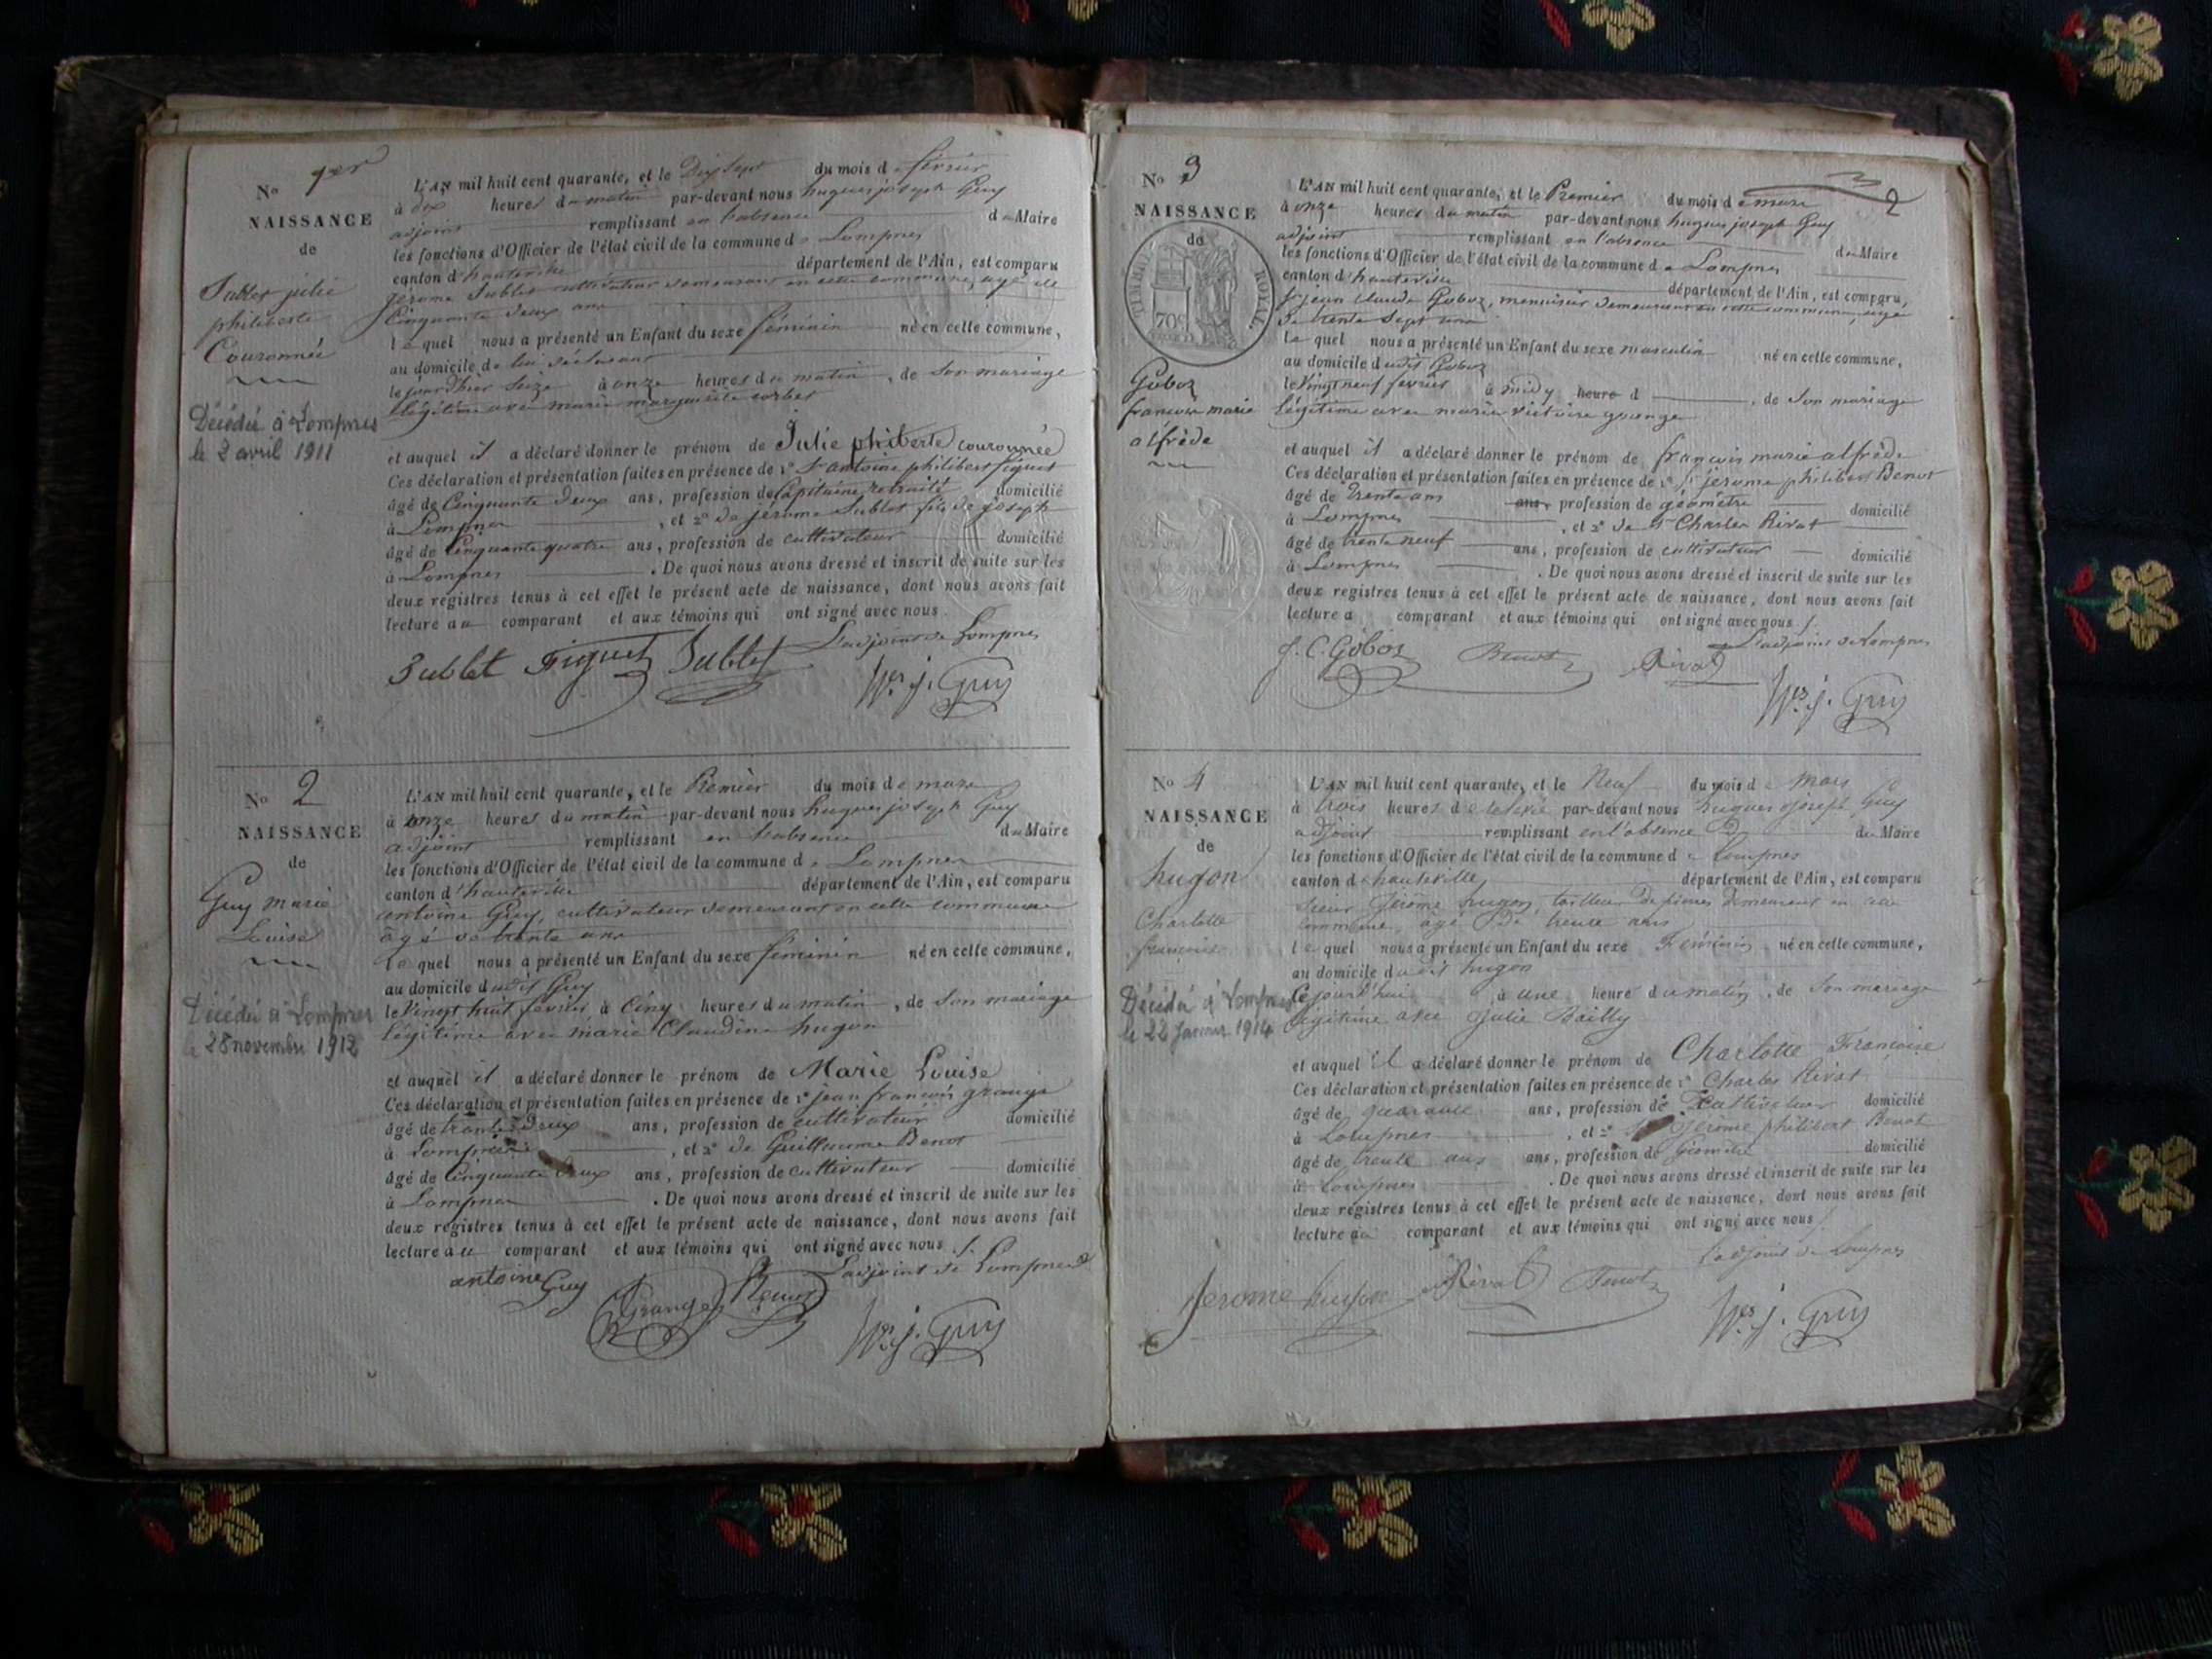 No 1er
NAISSANCE
de
Sublet julie
philiberte
Couronnée
Décédée à Lompnes
le 2 avril 1911
L'AN mil huit cent quarante, et le Dix Sept du mois de février
à dix heures du matin par-devant nous hugues joseph Guy
adjoint remplissant en l'absence du Maire
les fonctions d'Officier de l'état civil de la commune de Lompnes
canton d'hauteville département de l'Ain, est comparu
jérome Sublet cultivateur demeurant en cette commune, agé de
Cinquante deux ans
lequel nous a présenté un Enfant du sexe féminin né en cette commune,
au domicile de lui déclarant
le jourd'hier Seize à onze heures du matin, de Son mariage
légitime avec marie marguerite
et auquel il a déclaré donner le prénom de Julie philiberte couronnée
Ces déclaration et présentation faites en présence de 1º Sr antoine philibert figuet
âgé de Cinquante deux ans, profession de Capitaine retraité domicilié
à Lompnes, et 2º de jérome Sublet fils de joseph
âgé de Cinquante quatre ans, profession de cultivateur domicilié
à Lompnes. De quoi nous avons dressé et inscrit de suite sur les
deux registres tenus à cet effet le présent acte de naissance, dont nous avons fait
lecture au comparant et aux témoins qui ont signé avec nous.
L'adjoint de Lompnes
Sublet Figuet Sublet
hes j. Guy
No 2
NAISSANCE
de
Guy marie
Louise
Décédée à Lompnes
le 28 novembre 1912
L'AN mil huit cent quarante, et le Premier du mois de mars
à onze heures du matin par-devant nous hugues joseph Guy
adjoint remplissant en l'absence du Maire
les fonctions d'Officier de l'état civil de la commune de Lompnes
canton d'hauteville département de l'Ain, est comparu
antoine Guy, cultivateur demeurant en cette commune
âgé de trente ans
lequel nous a présenté un Enfant du sexe féminin né en cette commune,
au domicile dudit Guy
le Vingt huit février à Cinq heures du matin, de Son mariage
légitime avec marie Claudine hugon
et auquel il a déclaré donner le prénom de Marie Louise
Ces déclaration et présentation faites en présence de 1º jean françois grange
âgé de trente deux ans, profession de cultivateur domicilié
à Lompnes, et 2º de Guillaume Benot
âgé de Cinquante deux ans, profession de cultivateur domicilié
à Lompnes. De quoi nous avons dressé et inscrit de suite sur les
deux registres tenus à cet effet le présent acte de naissance, dont nous avons fait
lecture au comparant et aux témoins qui ont signé avec nous.
L'adjoint de Lompnes
antoine Guy Grange Benot
hes j. Guy
2
No 3
NAISSANCE
de
TIMBRE ROYAL
70c
Goboz
françois marie
alfrède
L'AN mil huit cent quarante, et le Premier du mois de mars
à onze heures du matin par-devant nous hugues joseph Guy
adjoint remplissant en l'absence du Maire
les fonctions d'Officier de l'état civil de la commune de Lompnes
canton d'hauteville département de l'Ain, est comparu,
Sr jean claude Goboz, menuisier demeurant en cette commune, agé
de trente Sept ans
lequel nous a présenté un Enfant du sexe masculin né en cette commune,
au domicile dudit Goboz
le Vingt neuf février à midy heure d, de Son mariage
légitime avec marie victoire grange
et auquel il a déclaré donner le prénom de françois marie alfrède
Ces déclaration et présentation faites en présence de 1º Sr jerome philibert Benot
âgé de trente ans ans, profession de géomètre domicilié
à Lompnes, et 2º de Sr Charles Rivat
âgé de trente neuf ans, profession de cultivateur domicilié
à Lompnes. De quoi nous avons dressé et inscrit de suite sur les
deux registres tenus à cet effet le présent acte de naissance, dont nous avons fait
lecture a comparant et aux témoins qui ont signé avec nous.
L'adjoint de Lompnes
J. C. Goboz Benot Rivat
hes j. Guy
No 4
NAISSANCE
de
hugon
Charlotte
françoise
Décédée à Lompnes
le 22 Janvier 1914
L'AN mil huit cent quarante, et le Neuf du mois de Mars
à trois heures de par-devant nous hugues joseph Guy
adjoint remplissant en l'absence du Maire
les fonctions d'Officier de l'état civil de la commune de Lompnes
canton d'hauteville département de l'Ain, est comparu
Sieur Jérome hugon, tailleur de pierres demeurant en cette
commune, âgé de trente ans
lequel nous a présenté un Enfant du sexe Féminin né en cette commune,
au domicile dudit hugon
Cejourd'hui à une heure du matin, de Son mariage
légitime avec Julie Bailly
et auquel il a déclaré donner le prénom de Charlotte Françoise
Ces déclaration et présentation faites en présence de 1º Charles Rivat
âgé de quarante ans, profession de Cultivateur domicilié
à Lompnes, et 2º Jerome philibert Benot
âgé de trente ans ans, profession de Géomètre domicilié
à Lompnes. De quoi nous avons dressé et inscrit de suite sur les
deux registres tenus à cet effet le présent acte de naissance, dont nous avons fait
lecture au comparant et aux témoins qui ont signé avec nous
l'adjoint de Lompnes
Jerome hugon Rivat Benot
hes j. Guy